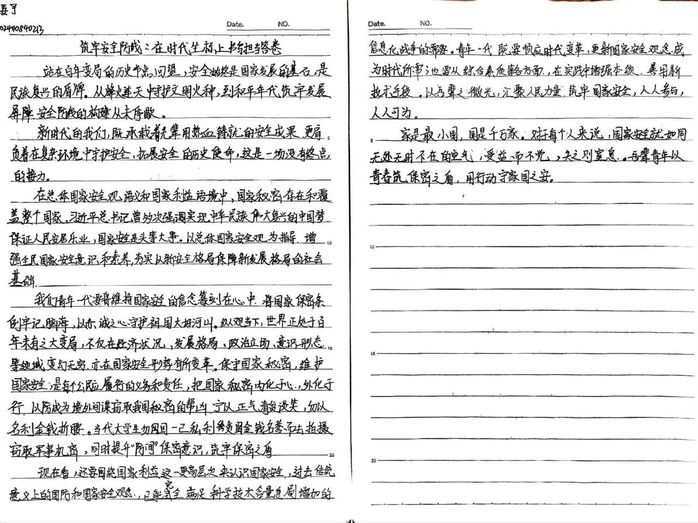 Date. NO.
筑牢安全防线：在时代坐标上书写担当答卷
站在百年变局的历史节点回望，安全始终是国家发展的基石，是
民族复兴的盾牌。从烽火连天中守护文明火种，到和平年代筑牢发展
屏障，安全防线的构建从未停歇。
新时代的我们，既承载着先辈用热血铸就的安全成果，更肩
负着在复杂环境中守护安全、拓展安全的历史使命，这是一场没有终点
的接力。
在总体国家安全观 语义和国家利益语境中，国家秘密存在和覆
盖整个国家。习近平总书记曾多次强调实现中华民族伟大复兴的中国梦
保证人民安居乐业，国家安全是头等大事。以总体国家安全观为指导，增
强全民国家安全意识和素养，夯实从新安全格局保障新发展格局的社会
基础
我们青年一代要将维护国家安全的信念篆刻在心中，将国家保密条
例牢记胸膛，以赤诚之心守护祖国大好河山。纵观当下，世界正处于百
年未有之大变局，不仅在经济状况、发展格局、政治立场、意识形态
等领域变幻无穷，亦在国家安全形势有所变革。保守国家秘密，维护
国家安全，是每个公民应履行的义务和责任，把国家秘密内化于心，外化于
行，以防成为境外间谍窃取我国秘密的帮凶，宁以正气
名利金钱折腰。当代大学生勿因一己私利
窃取军事机密，同时提升“防间”保密意识，筑牢保密之盾
现在看，还要围绕国家利益这一更高层次来认识国家安全，过去传统
意义上的国防和国家安全观念，已难完全满足科学技术含量急剧增加的
Date. NO.
信息化战争的需要。青年一代既要顺应时代变革，更新国家安全观念，成
为时代所率；也要从综合素质
技术手段。以吾辈之微光，汇聚人民力量，筑牢国家安全，人人参与，
人人可为。
家是最小国，国是千万家。对于每个人来说，国家安全就如同
无处无时不在的空气，受益而不觉，失之则窒息。吾辈青年以
青春筑保密之盾，用行动守家国之安。